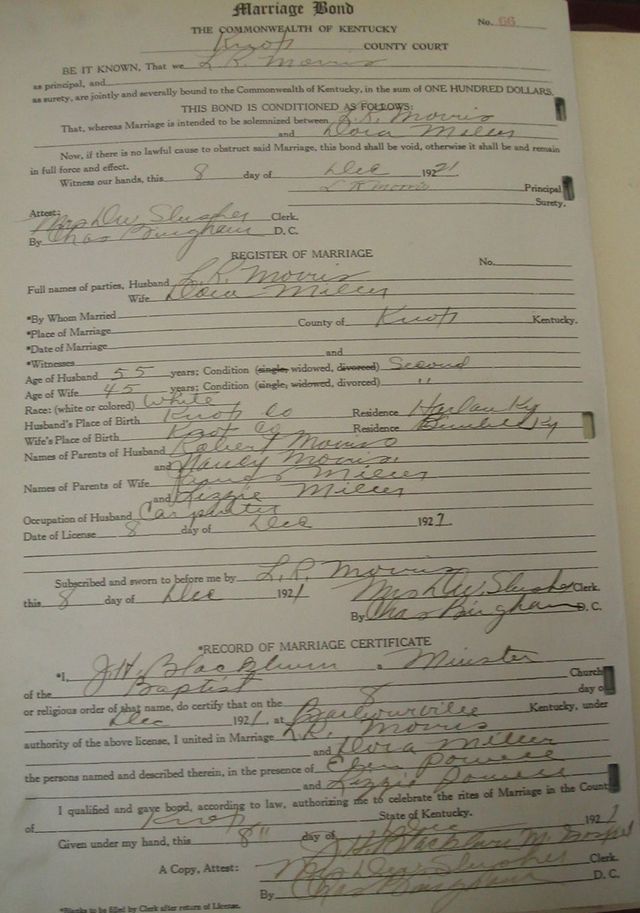 Marriage Bond
No. 66
THE COMMONWEALTH OF KENTUCKY
Knox COUNTY COURT
BE IT KNOWN, That we L. R. Morris
as principal, and
as surety, are jointly and severally bound to the Commonwealth of Kentucky, in the sum of ONE HUNDRED DOLLARS.
THIS BOND IS CONDITIONED AS FOLLOWS:
That, whereas Marriage is intended to be solemnized between L. R. Morris
and Dora Miller
Now, if there is no lawful cause to obstruct said Marriage, this bond shall be void, otherwise it shall be and remain
in full force and effect.
Witness our hands, this 8 day of Dec 1921
L R Morris Principal
Surety.
Attest:
Mrs D W Slusher Clerk.
By Chas Bingham D. C.
REGISTER OF MARRIAGE
No.
Full names of parties, Husband L. R. Morris
Wife Dora Miller
*By Whom Married
*Place of Marriage County of Knox Kentucky.
*Date of Marriage
*Witnesses and
Age of Husband 55 years; Condition (single, widowed, divorced) Second
Age of Wife 45 years; Condition (single, widowed, divorced) "
Race: (white or colored) White
Husband's Place of Birth Knox Co Residence Harlan Ky
Wife's Place of Birth Knox Co Residence Ky
Names of Parents of Husband Robert Morris
and Nancy Morris
Names of Parents of Wife Miller
and Lizzie Miller
Occupation of Husband Carpenter
Date of License 8 day of Dec 1921
Subscribed and sworn to before me by L. R. Morris
this 8 day of Dec 1921 Mrs D. W. Slusher Clerk.
By Chas Bingham D. C.
*RECORD OF MARRIAGE CERTIFICATE
*I, J. H. Blackburn . Minister
of the Baptist Church
or religious order of that name, do certify that on the 8 day o
Dec 1921, at Barbourville Kentucky, under
authority of the above license, I united in Marriage L. R. Morris
and Dora Miller
the persons named and described therein, in the presence of Powell
and Lizzie Powell
I qualified and gave bond, according to law, authorizing me to celebrate the rites of Marriage in the Count
of Knox State of Kentucky.
Given under my hand, this 8" day of Dec 1921
J H Blackburn M. Gospel
A Copy, Attest: Mrs D W Slusher Clerk.
By Chas Bingham D. C.
*Blanks to be filled by Clerk after return of License.